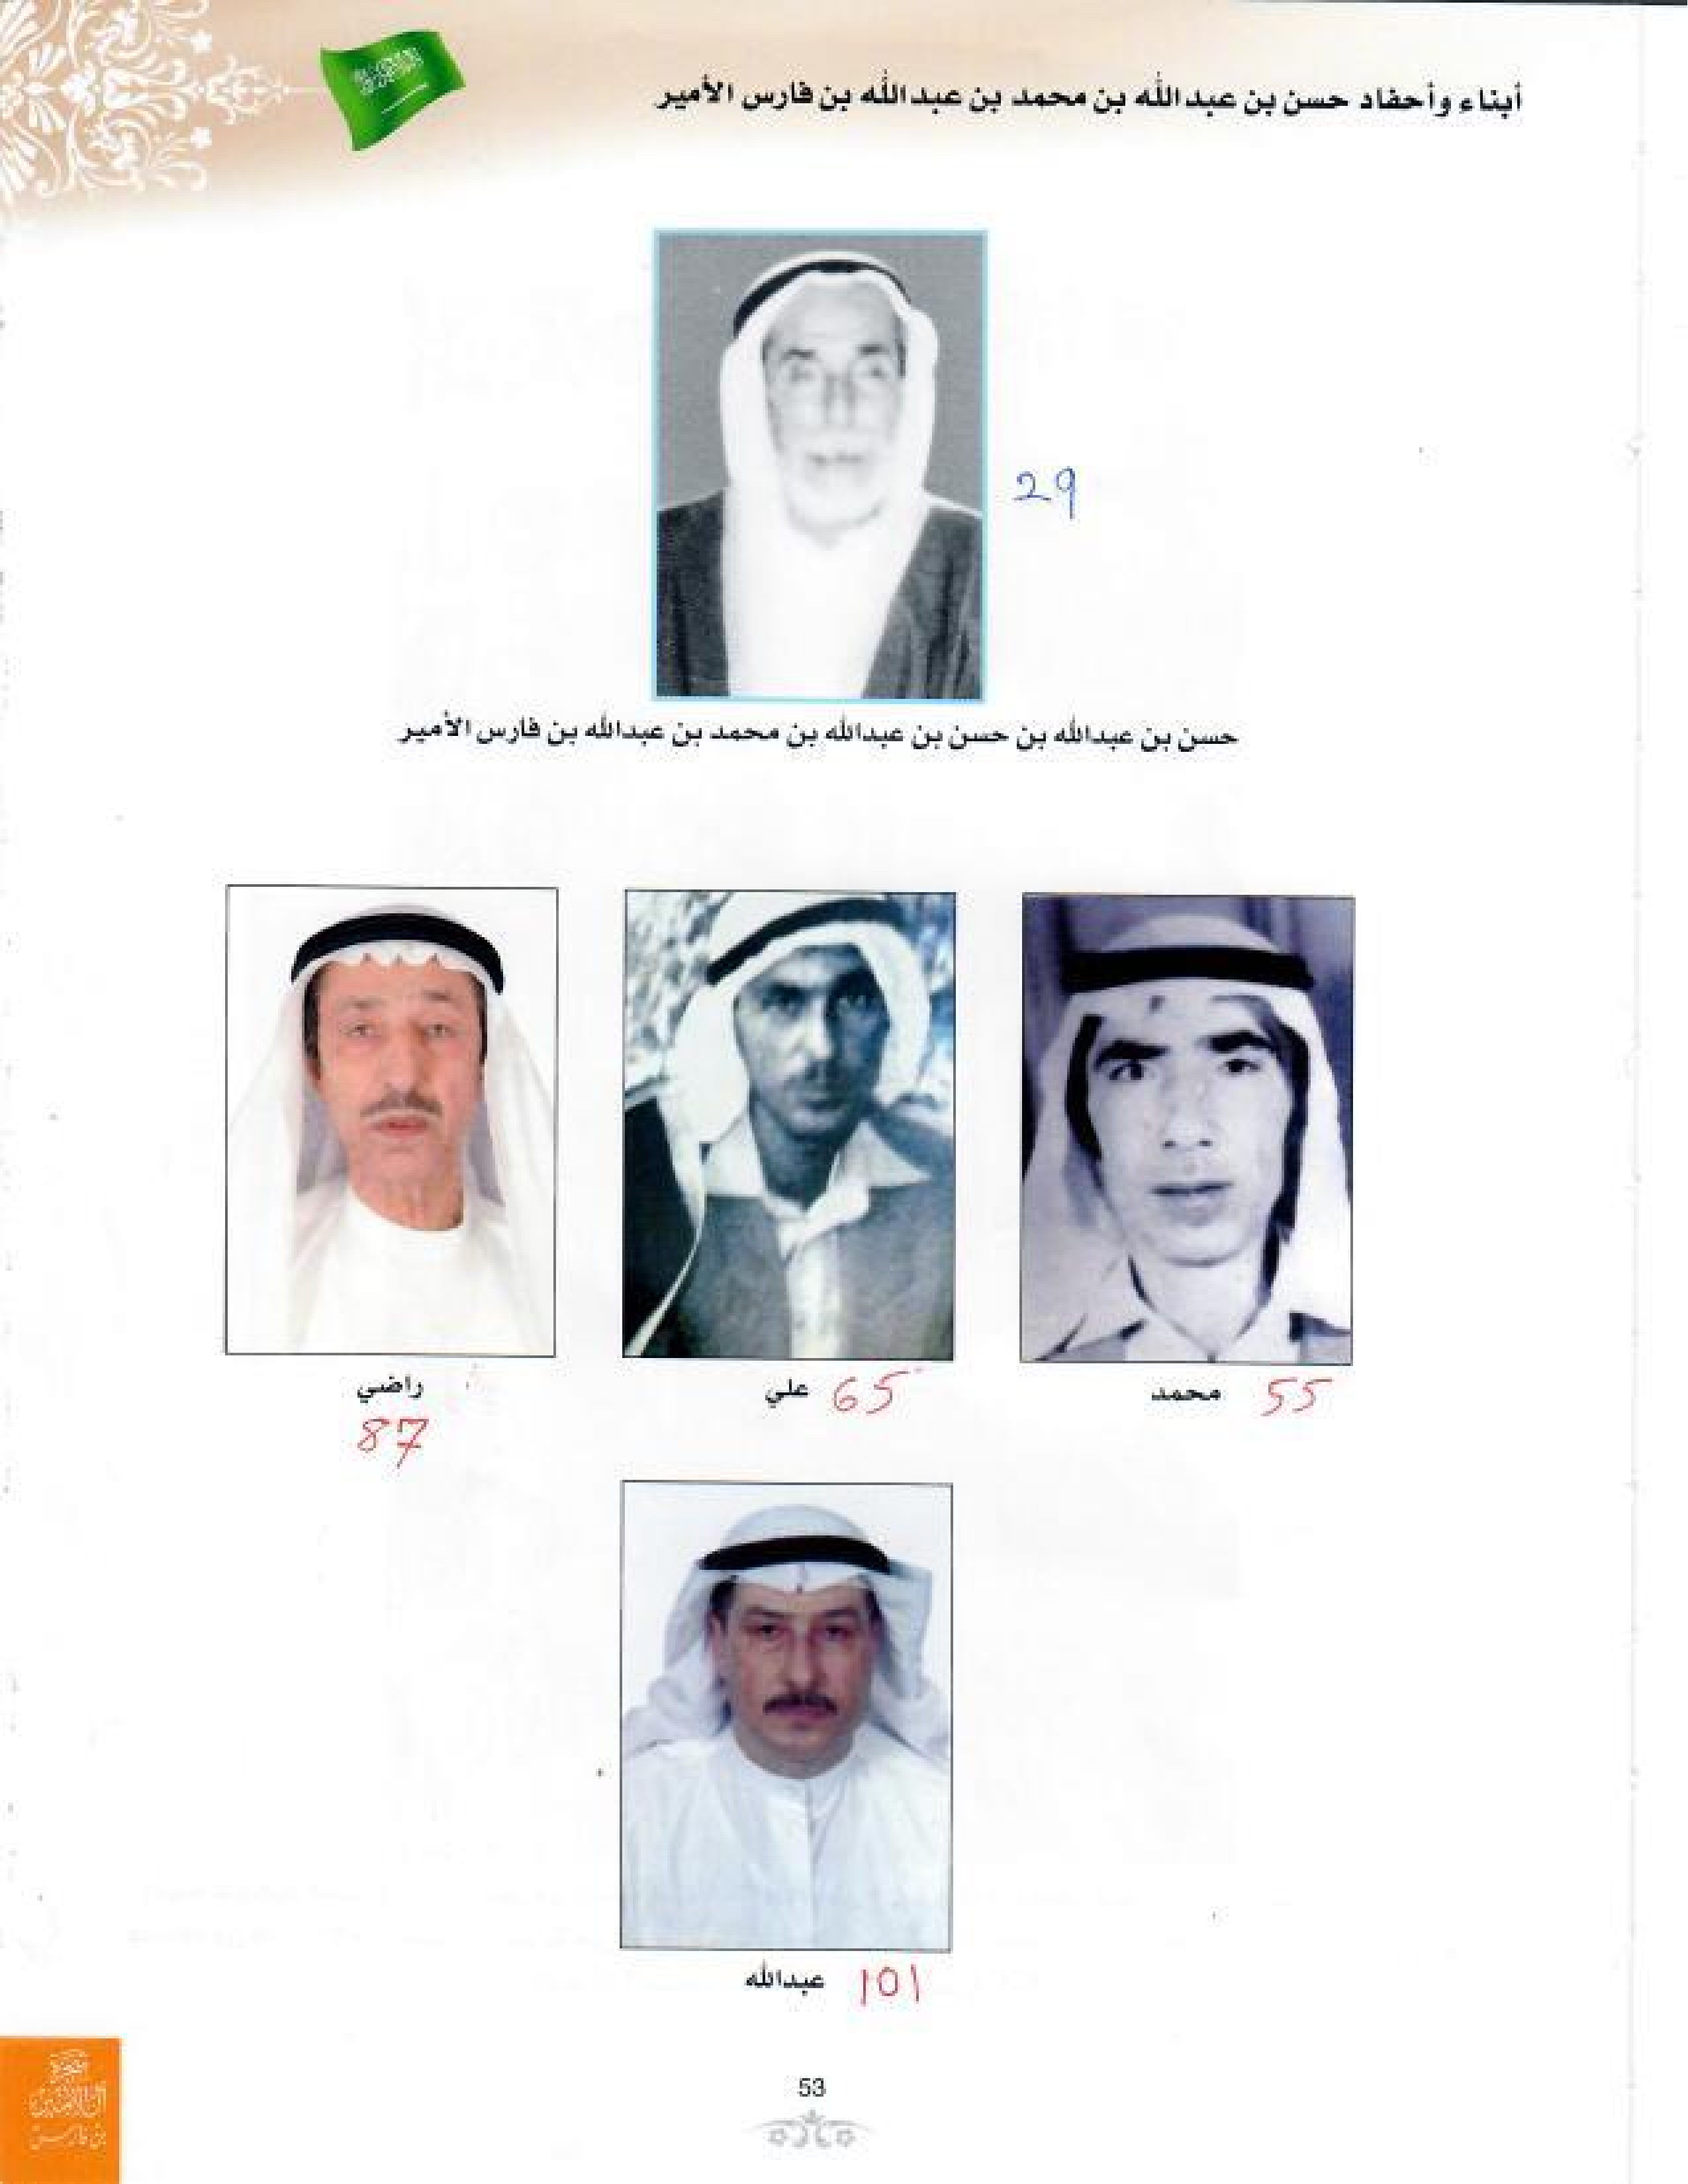 أبناء وأحفاد حسن بن عبد الله بن محمد بن عبد الله بن فارس الأمير
29
حسن بن عبدالله بن حسن بن عبدالله بن محمد بن عبدالله بن فارس الأمير
محمد 55
علي 65
راضي
87
عبدالله 101
53
شجرة
آل الأمير
بن فارس